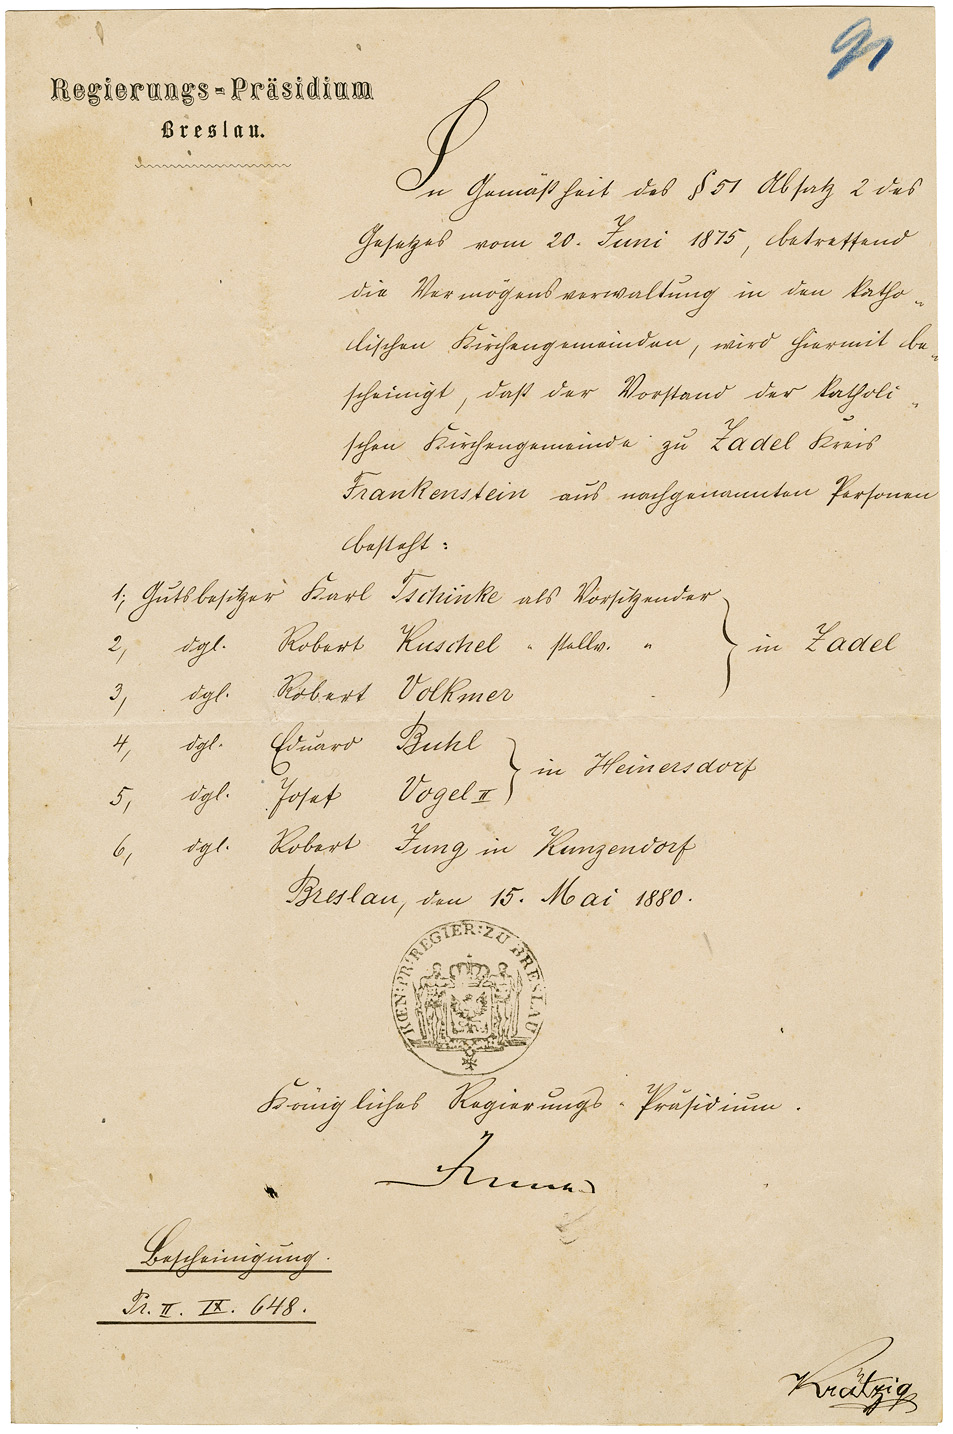 Regierungs-Präsidium
Breslau.
In Gemäßheit des § 51 Absatz 2 des
Gesetzes vom 20. Juni 1875, betreffend
die Vermögensverwaltung in den katho-
lischen Kirchengemeinden, wird hiermit be-
scheinigt, daß der Vorstand der katholi-
schen Kirchengemeinde zu Zadel Kreis
Frankenstein aus nachgenannten Personen
besteht:
1, Gutsbesitzer Karl Tschinke als Vorsitzender
2, dgl. Robert Kuschel " stellv. " } in Zadel
3, dgl. Robert Volkmer
4, dgl. Eduard Buhl
5, dgl. Josef Vogel II } in Heinersdorf
6, dgl. Robert Jung in Kunzendorf
Breslau, den 15. Mai 1880.
KŒN: PR: REGIER: ZU BRESLAU
Königliches Regierungs-Präsidium.
Bescheinigung.
Pr. II. IX. 648.
Krätzig